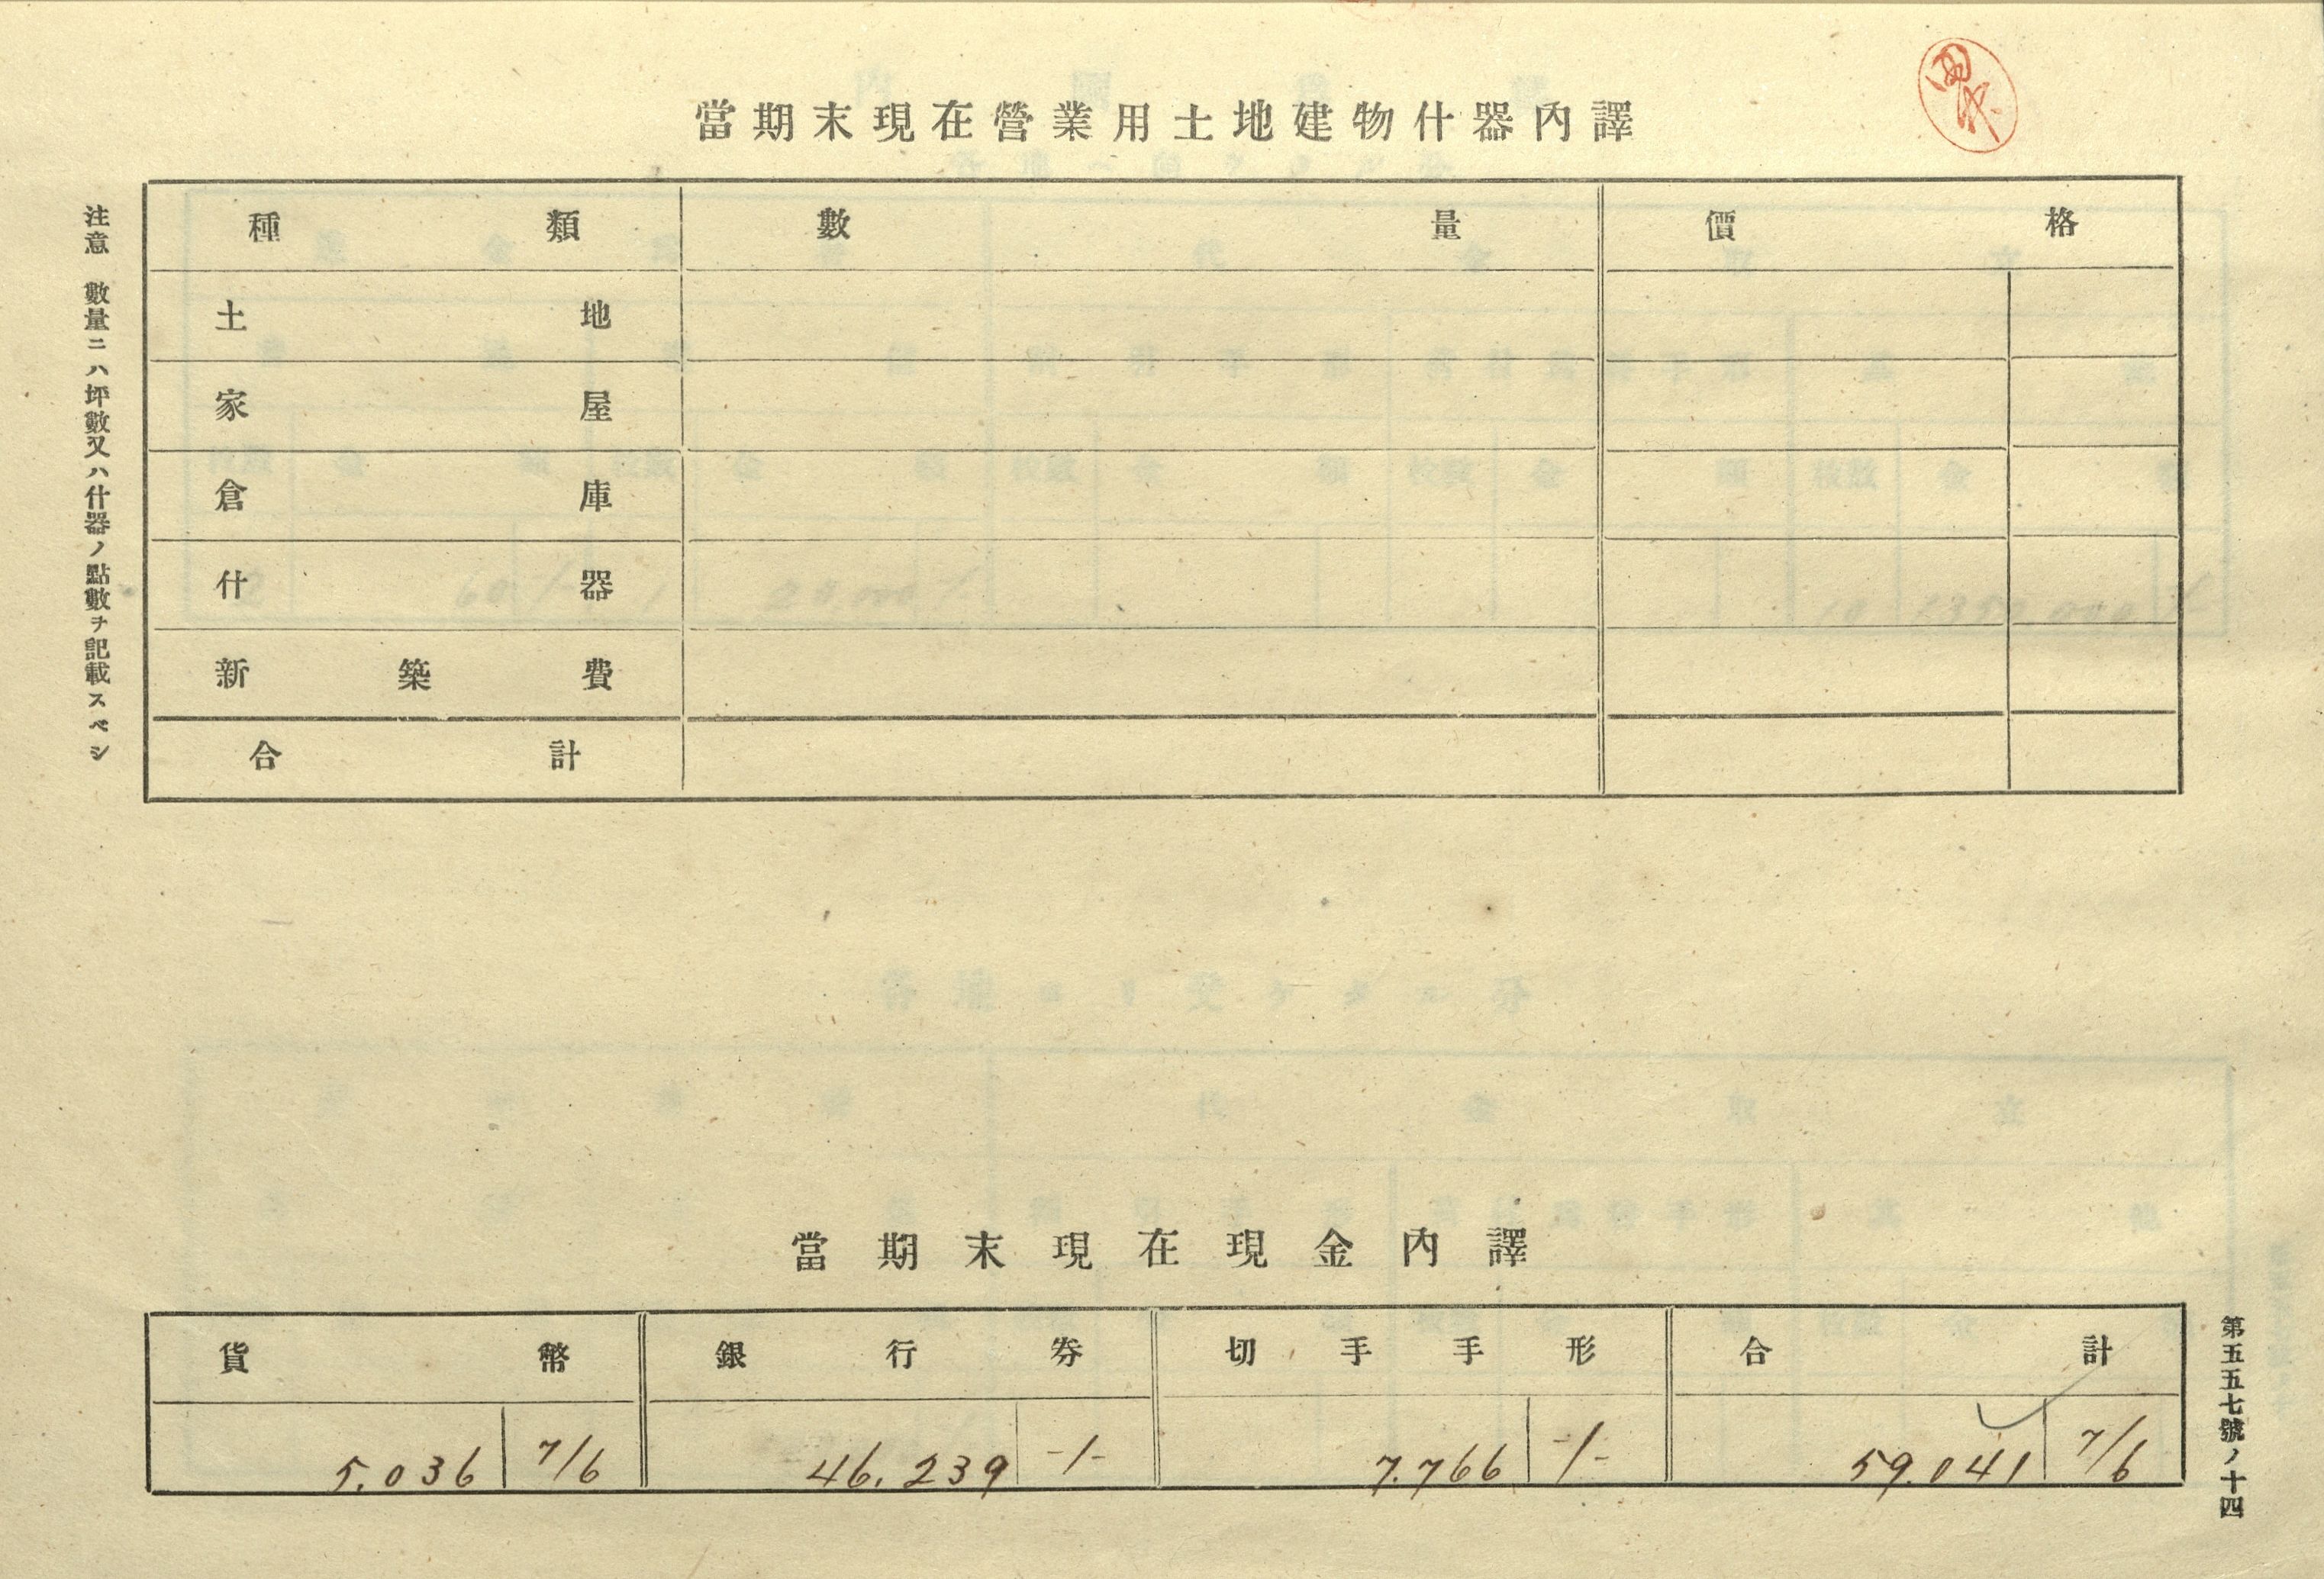 當期末現在營業用土地建物什器內譯
注意　數量ニハ坪數又ハ什器ノ點數ヲ記載スベシ
種類　數量　價格
土地
家屋
倉庫
什器
新築費
合計
當期末現在現金內譯
貨幣　銀行券　切手手形　合計
5.036 7/6　46.239 -/-　7.766 -/-　59.041 7/6
第五五七號ノ十四